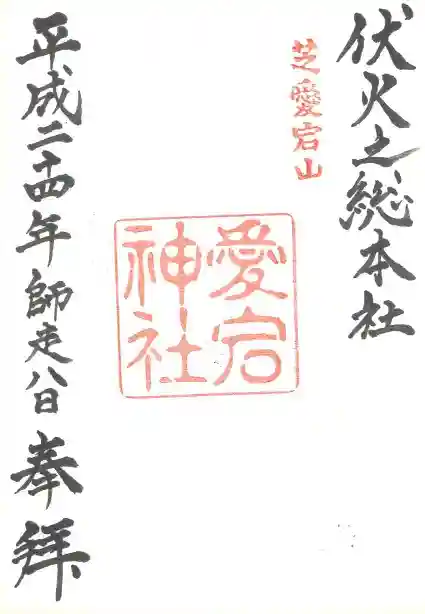 伏火之総本社
芝愛宕山
愛宕
神社
平成二十四年師走八日
奉拜